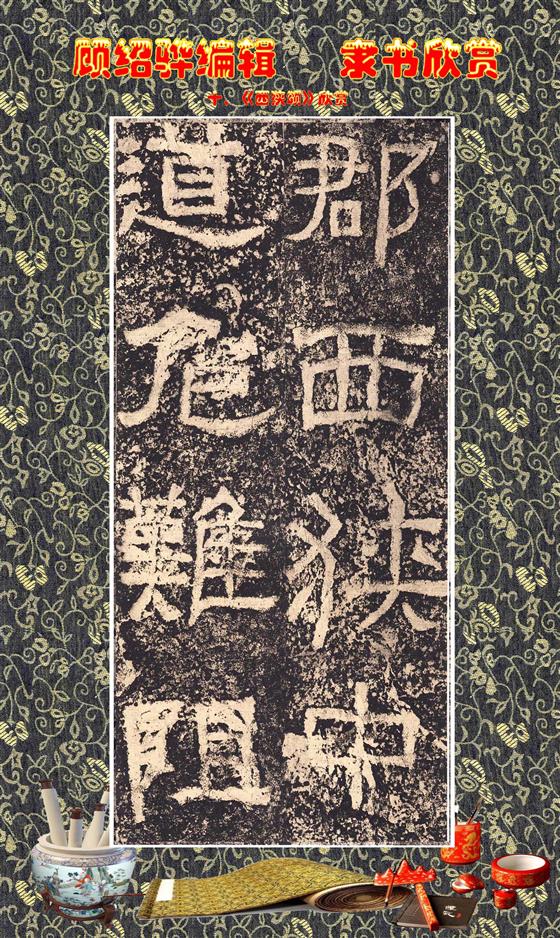 顾绍骅编辑 隶书欣赏
十、《西狭颂》欣赏
郡西狭中
道危難阻